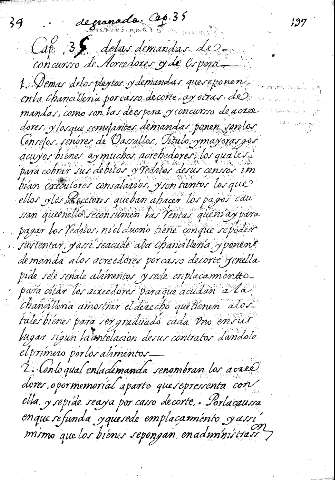 34 de granada. Cap. 35 137
Cap. 35 de las demandas de
concurso de Acreedores, y de espera
1. Demas delos pleytos, y demandas que se ponen
en la Chancilleria por casso de corte, ay otras de
mandas, como son las de espera y concurso de acree
dores, y los que semejantes demandas ponen son los
Consejos, señores de Vassallos, Titulo, y mayorasgos
a cuyos bienes ay muchos acreedores; los quales
para cobrar sus debitos, y Reditos de sus censos im
bian executores con salarios, y son tantos los que
ellos y las execuciones que ban a hacer los pagos cau
san que en ellos se consumen las Rentas, que no ay para
pagar los Reditos, ni el dueño tiene con que se poder
sustentar, y assi se acude a la Chancilleria, y ponen
demanda a los acreedores por casso de corte, y en ella
pide se le señale alimentos, y se da emplacamiento
para citar los acreedores para que acudan a la
Chancilleria a mostrar el derecho que tienen a los
tales bienes para ser graduado cada vno en su
lugar segun la antelasion de sus contratos dandole
el primero por los alimentos
2. en lo qual en la demanda se nombran los acree
dores, o por memorial aparte que se presenta con
ella, y se pide se aya por casso de corte. Por la caussa
en que se funda, y que se de emplacamiento, y assi
mismo que los bienes se pongan en administrassion